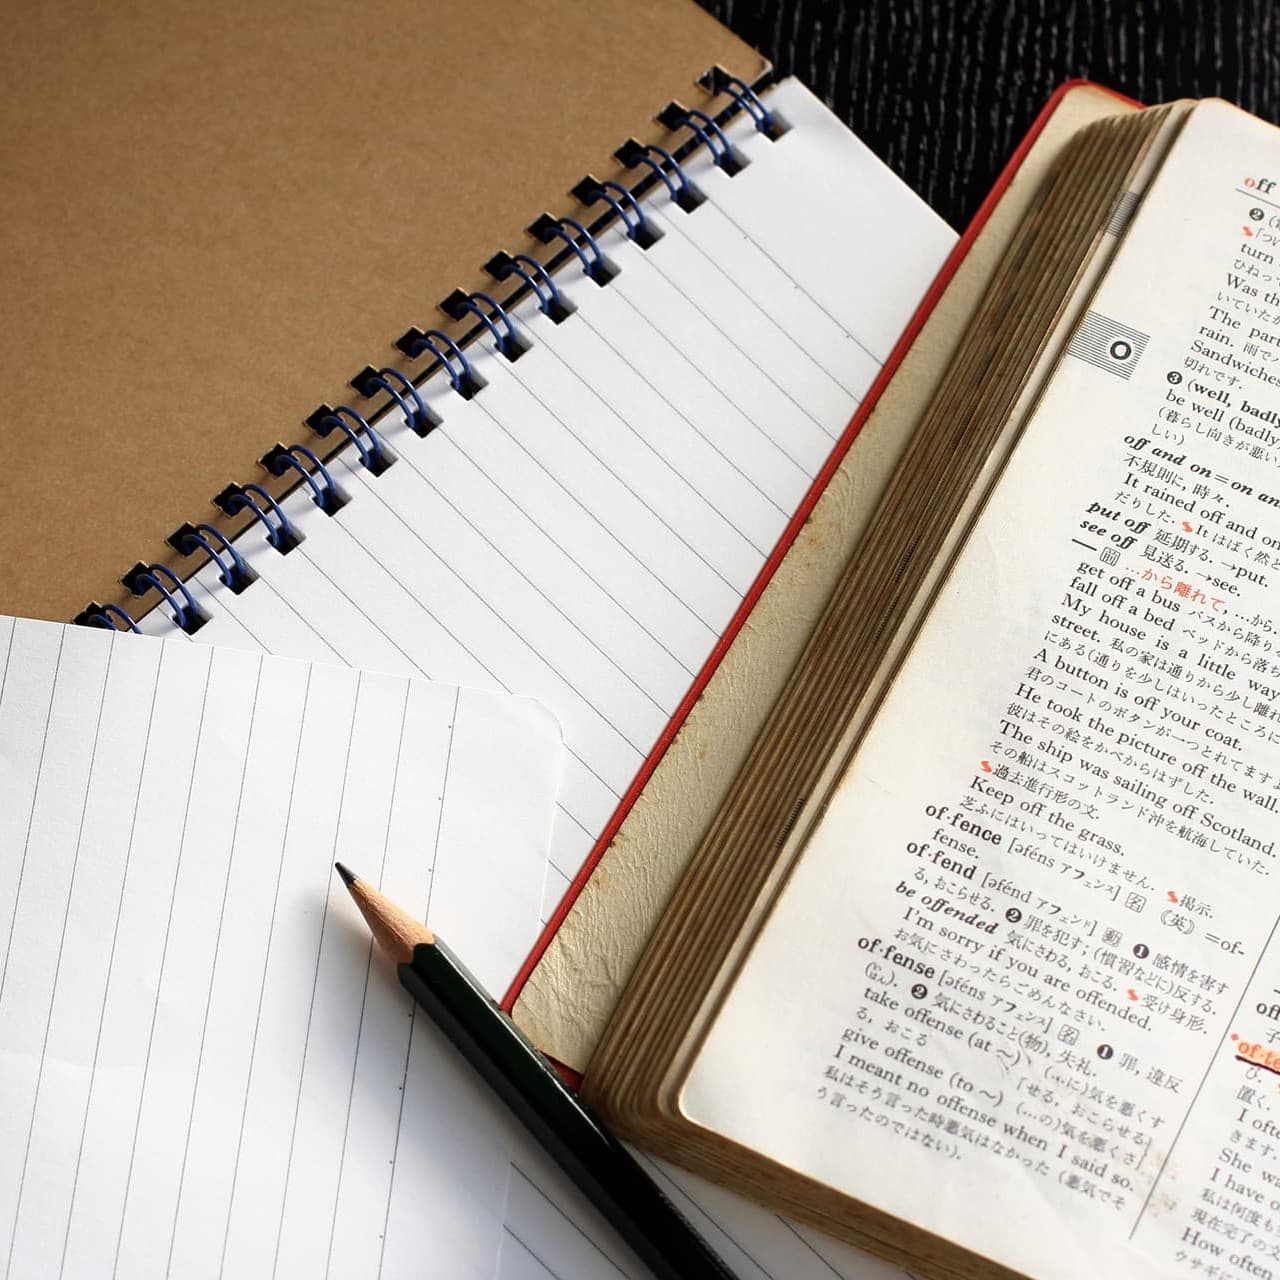 off
O
❷
turn
ひねっ
Was th
いていた
The part
rain. 雨で
Sandwiches
切れです.
❸ (well, badly
be well (badly
(暮らし向きが悪い
しい)
off and on=on and
不規則に, 時々.
It rained off and on
だりした. It はばく然と
put off 延期する. →put.
see off 見送る. →see.
— 前 …から離れて, …から
get off a bus バスから降り
fall off a bed ベッドから落ち
My house is a little way
street. 私の家は通りから少し離れ
にある(通りを少しはいったところに
A button is off your coat.
君のコートのボタンが一つとれてます
He took the picture off the wall.
彼はその絵をかべからはずした.
The ship was sailing off Scotland.
その船はスコットランド沖を航海していた.
過去進行形の文.
Keep off the grass.
芝ふにはいってはいけません. 掲示.
of·fence [əféns アフェンス] 名 《英》=of-
fense.
of·fend [əfénd アフェンド] 動 ❶ 感情を害す
る, おこらせる. ❷ 罪を犯す; (慣習などに)反する.
be offended 気にさわる, おこる. 受け身形.
I'm sorry if you are offended.
お気にさわったらごめんなさい.
of·fense [əféns アフェンス] 名 ❶ 罪, 違反
(はん). ❷ 気にさわること(物), 失礼.
take offense (at ~) (…に)気を悪くす
る, おこる
give offense (to ~) (…の)気を悪くさ
せる, おこらせる
I meant no offense when I said so.
私はそう言った時悪気はなかった (悪気でそ
う言ったのではない).
of
子
of·te
ひ.
置く.
I ofte
きます.
She wa
I have o
私は何度も
現在完了の文
How often
ウサギに